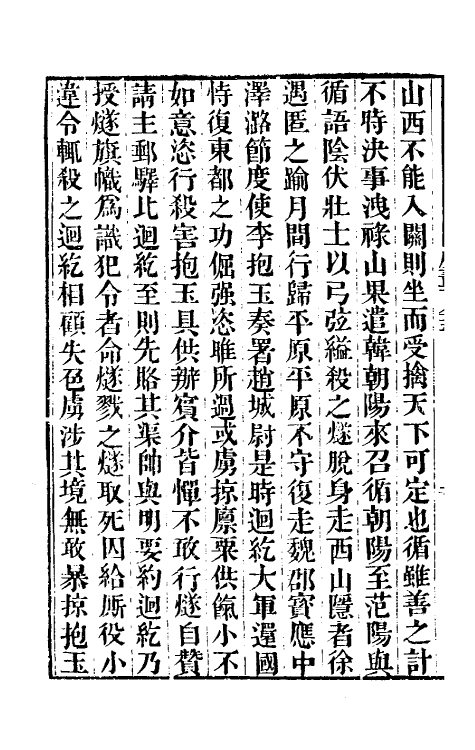 山西不能入關則坐而受擒天下可定也循雖善之計
不時決事洩祿山果遣韓朝陽來召循朝陽至范陽與
循語陰伏壯士以弓弦縊殺之燧脫身走西山隱者徐
遇匿之踰月間行歸平原平原不守復走魏郡寶應中
澤潞節度使李抱玉奏署趙城尉是時迴紇大軍還國
恃復東都之功倔强恣睢所過或虜掠廪粟供餼小不
如意恣行殺害抱玉具供辦賓介皆憚不敢行燧自贊
請主郵驛比迴紇至則先賂其渠帥與明要約迴紇乃
授燧旗幟爲識犯令者命燧戮之燧取死囚給厮役小
違令輒殺之迴紇相顧失色虜涉其境無敢暴掠抱玉